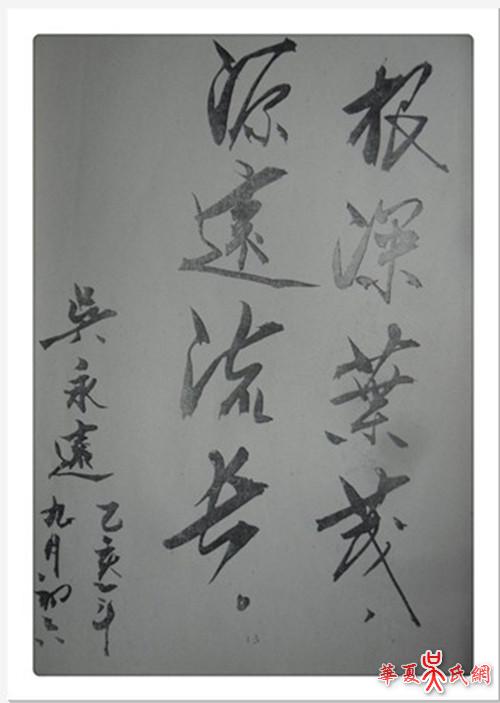 根深葉茂、
源遠流长。
吳永遠
乙亥年
九月初六
13
華夏吳氏網